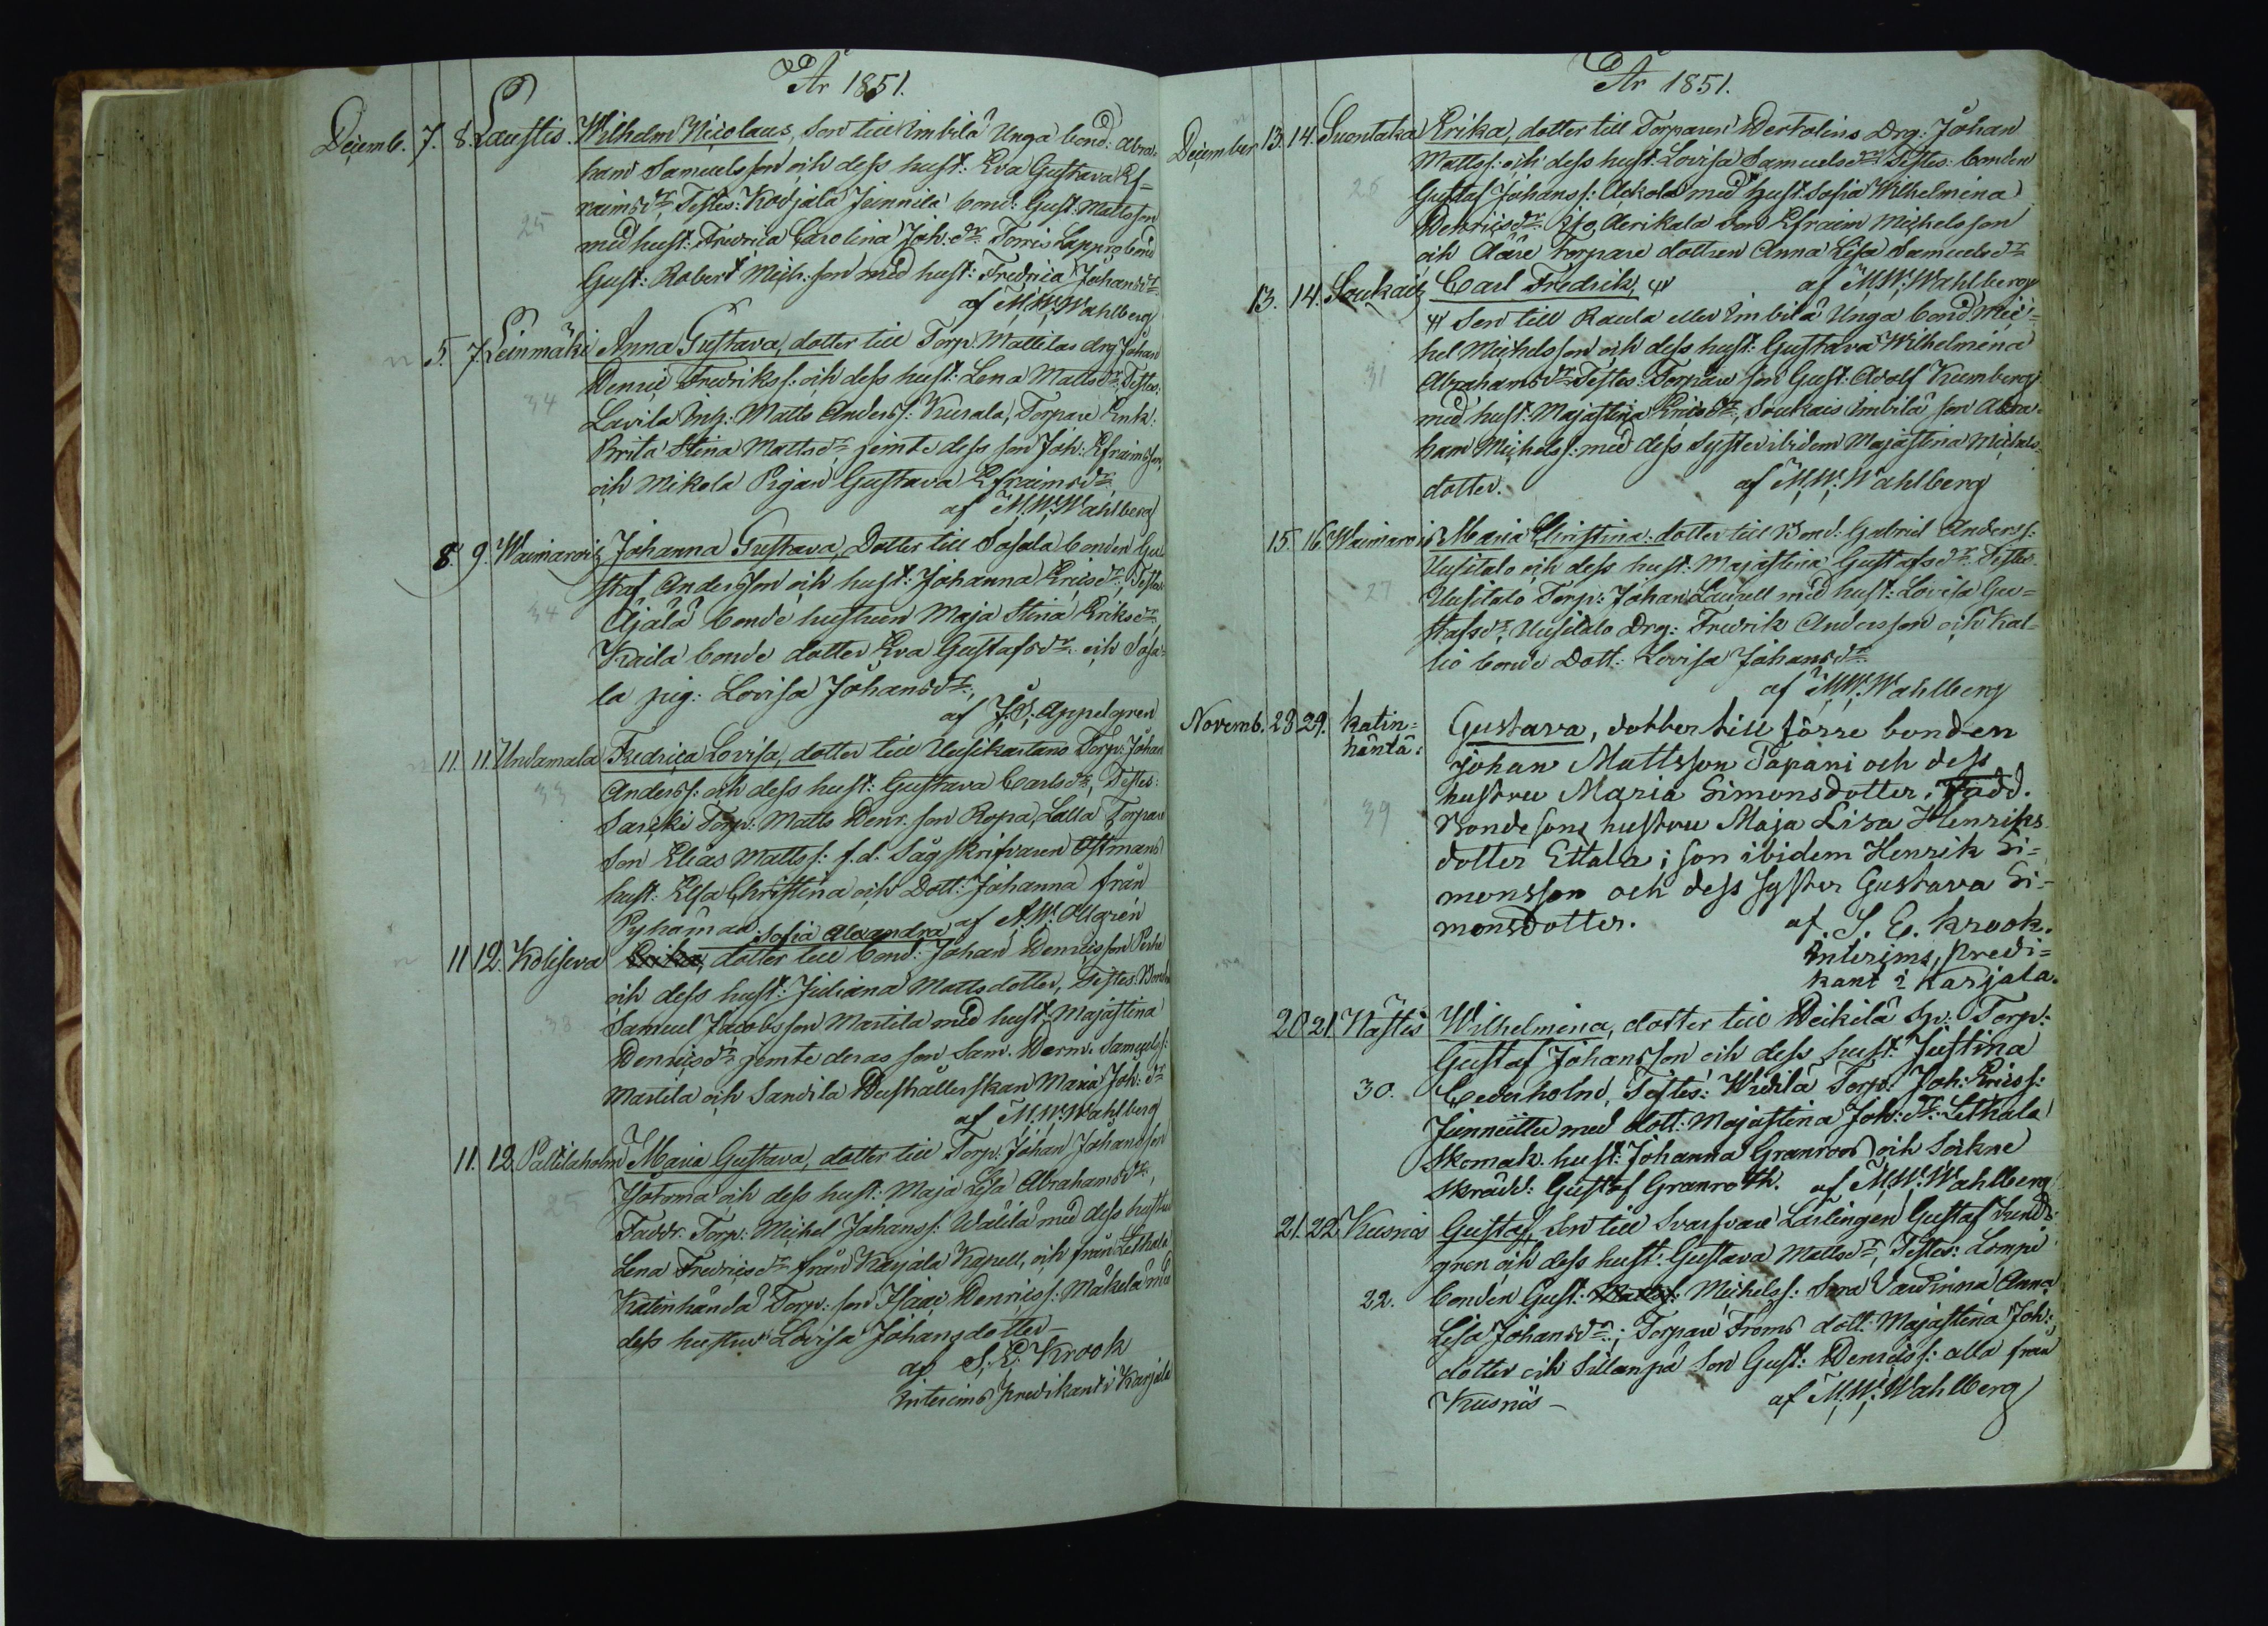 År 1851.
Decemb. 7. 8. Laustis. Wilhelm Nicolaus, Son till Imbilä Unga bond: Abra-
ham Samuelsson och dess hust: Eva Gustava Ef=
raimsdr, Testes: Kodjala Jeinnilä bond: Gust: Mattsson
25
med hust: Fredrica Carolina Joh:dr. Torris Lappo bond
Gust: Robert Mich:son med hust: Fredrica Johansdr.
af M.W. Wahlberg
n 5. 7. Leinmäki Anna Gustava, dotter till Torp. Mattilas drg Johan
Henric Fredrikss: och dess hust: Lena Mattsdr, Testes:
34
Lavila Inh: Matts Anderss: Kurala, Torpare Enk:
Brita Stina Mattsdr jemte dess son Joh: Efraimsson,
och Mikola Pigan Gustava Efraimsdr
af M.W. Wahlberg
8. 9. Waimarois Johanna Gustava Dotter till Sasala bonden Gu
staf Andersson och hust: Johanna Ericsdr, Testes
34
Äjälä bonde hustrun Maja Stina Eriksdr,
Kaila bonde dotter Eva Gustafsdr. och Sasa-
la pig: Lovisa Johansdr.,
af J.S. Appelgren
n 11. 11. Undamala Fredrica Lovisa, dotter till Uusikartano Torp: Johan
33
Anderss: och dess hust: Gustava Carlsdr, Testes:
Sariki Torp: Matts Henr. son Ropa, Lalla Torpare
Son Elias Mattss: f.d. Sågskrifvaren Östmans
hust: Elsa Christina och Dott: Johanna från
Pyhämaa af A.W. Allgrén
Sofia Alexandra
n 11 12. Koliseva Erika, dotter till bond: Johan Henricsson Perhe
och dess hust: Juliana Mattsdotter, Testes: Bonden
38
Samuel Jacobsson Martila med hust: Majastina
Henricsdr jemte deras son Sam. Herm. Samuelss:
Martila och Sandila Hushållerskan Maria Joh:dr
af M.W. Wahlberg
11. 12. Palttilaholm Maria Gustava, dotter till Torp: Johan Johansson
25
Isotorma och dess hust: Maja Lisa Abrahamsdr,
Faddr. Torp: Michel Johanss: Walila med dess hustru
Lena Fredricsdr från Karjala Kapell, och från Lethala
Katinhändä Torp: son Isaac Henricss: Mäkelä med
dess hustru Lovisa Johansdotter –
af S.E. Krook
Interims predikant i Karjala
År 1851.
December 13. 14. Suontaka Erika, dotter till Torparen Hertolins Drg: Johan
Mattss: och dess hust: Lovisa Samuelsdr Testes: bonden
26
Gustaf Johanss: Ackola med hust. Sofia Wilhelmina
Henricsdr. Iso Aerikala son Efraim Michelsson
och Ääre Torpare dottren Anna Lisa Samuelsdr
af M.W. Wahlberg
13. 14. Soukais Carl Fredrik,
Son till Raula eller Imbilä Unga bond Mic=
hel Michelsson och dess hust: Gustava Wilhelmina
31
Abrahamsdr Testes: Torpare son Gust: Adolf Kumberg
med hust: Majastina Ericsdr, Soukais Imbilä son Abra-
ham Michelss: med dess Syster ibidem Majastina Michels
dotter. af M.W. Wahlberg
15. 16 Waimarois Maria Christina: dotter till Bond: Gabriel Anderss:
Uusitalo och dess hust: Majastina Gustafsdr. Testes
27
Uusitalo Torp: Johan Laurell med hust: Lovisa Gu=
stafsdr, Uusitalo Drg: Fredrik Andersson och Kal-
lio bonde Dott: Lovisa Johansdr.
af M.W. Wahlberg
Novemb. 28 29. Katin=
häntä: Gustava, dotter till förre bonden
Johan Mattsson Tapani och dess
hustru Maria Simonsdotter. Fadd.
39
Bondesons hustru Maja Lisa Henriks
dotter Ettala; son ibidem Henrik Si=
monsson och dess syster Gustava Si=
monsdotter. af. S. E. Krook.
Interims, predi=
kant i Karjala.
20 21. Nästis Wilhelmina, dotter till Heikilä Sp. Torp:
Gustaf Johansson och dess hust: Justina
30. Cederholm, Testes: Widilä Torp: Joh: Ericss:
Junneitteu med dott: Majastina Joh:dr. Lethala
Skomak. hust: Johanna Granroos och Sockne
Skrädd: Gustaf Granroth. af M.W. Wahlberg
21. 22 Kusnäs Gustaf, Son till Svarfvare Lärlingen Gustaf Sund-
gren och dess hust: Gustava Mattsdr, Testes: Lompi
22. bonden Gust: Mattss: Michelss: Sora Vardinna Anna
Lisa Johansdr.; Torpare Froms dott: Majastina Joh:
dotter och Sillanpä Son Gust: Henricss: alla från
Kusnäs – af M.W. Wahlberg